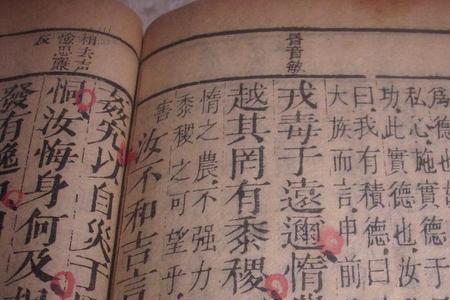 昬音敏
為德也故
私心施實德
功此實德也汝
曰我有積德曰
大族而言申前
戎毒于遠邇惰
越其罔有黍稷
惰之農不强力
稷之可望乎
害
汝不和吉言
相去聲
憸思廉
反
姦宄以自災于
恫汝悔身何及
發有逸口